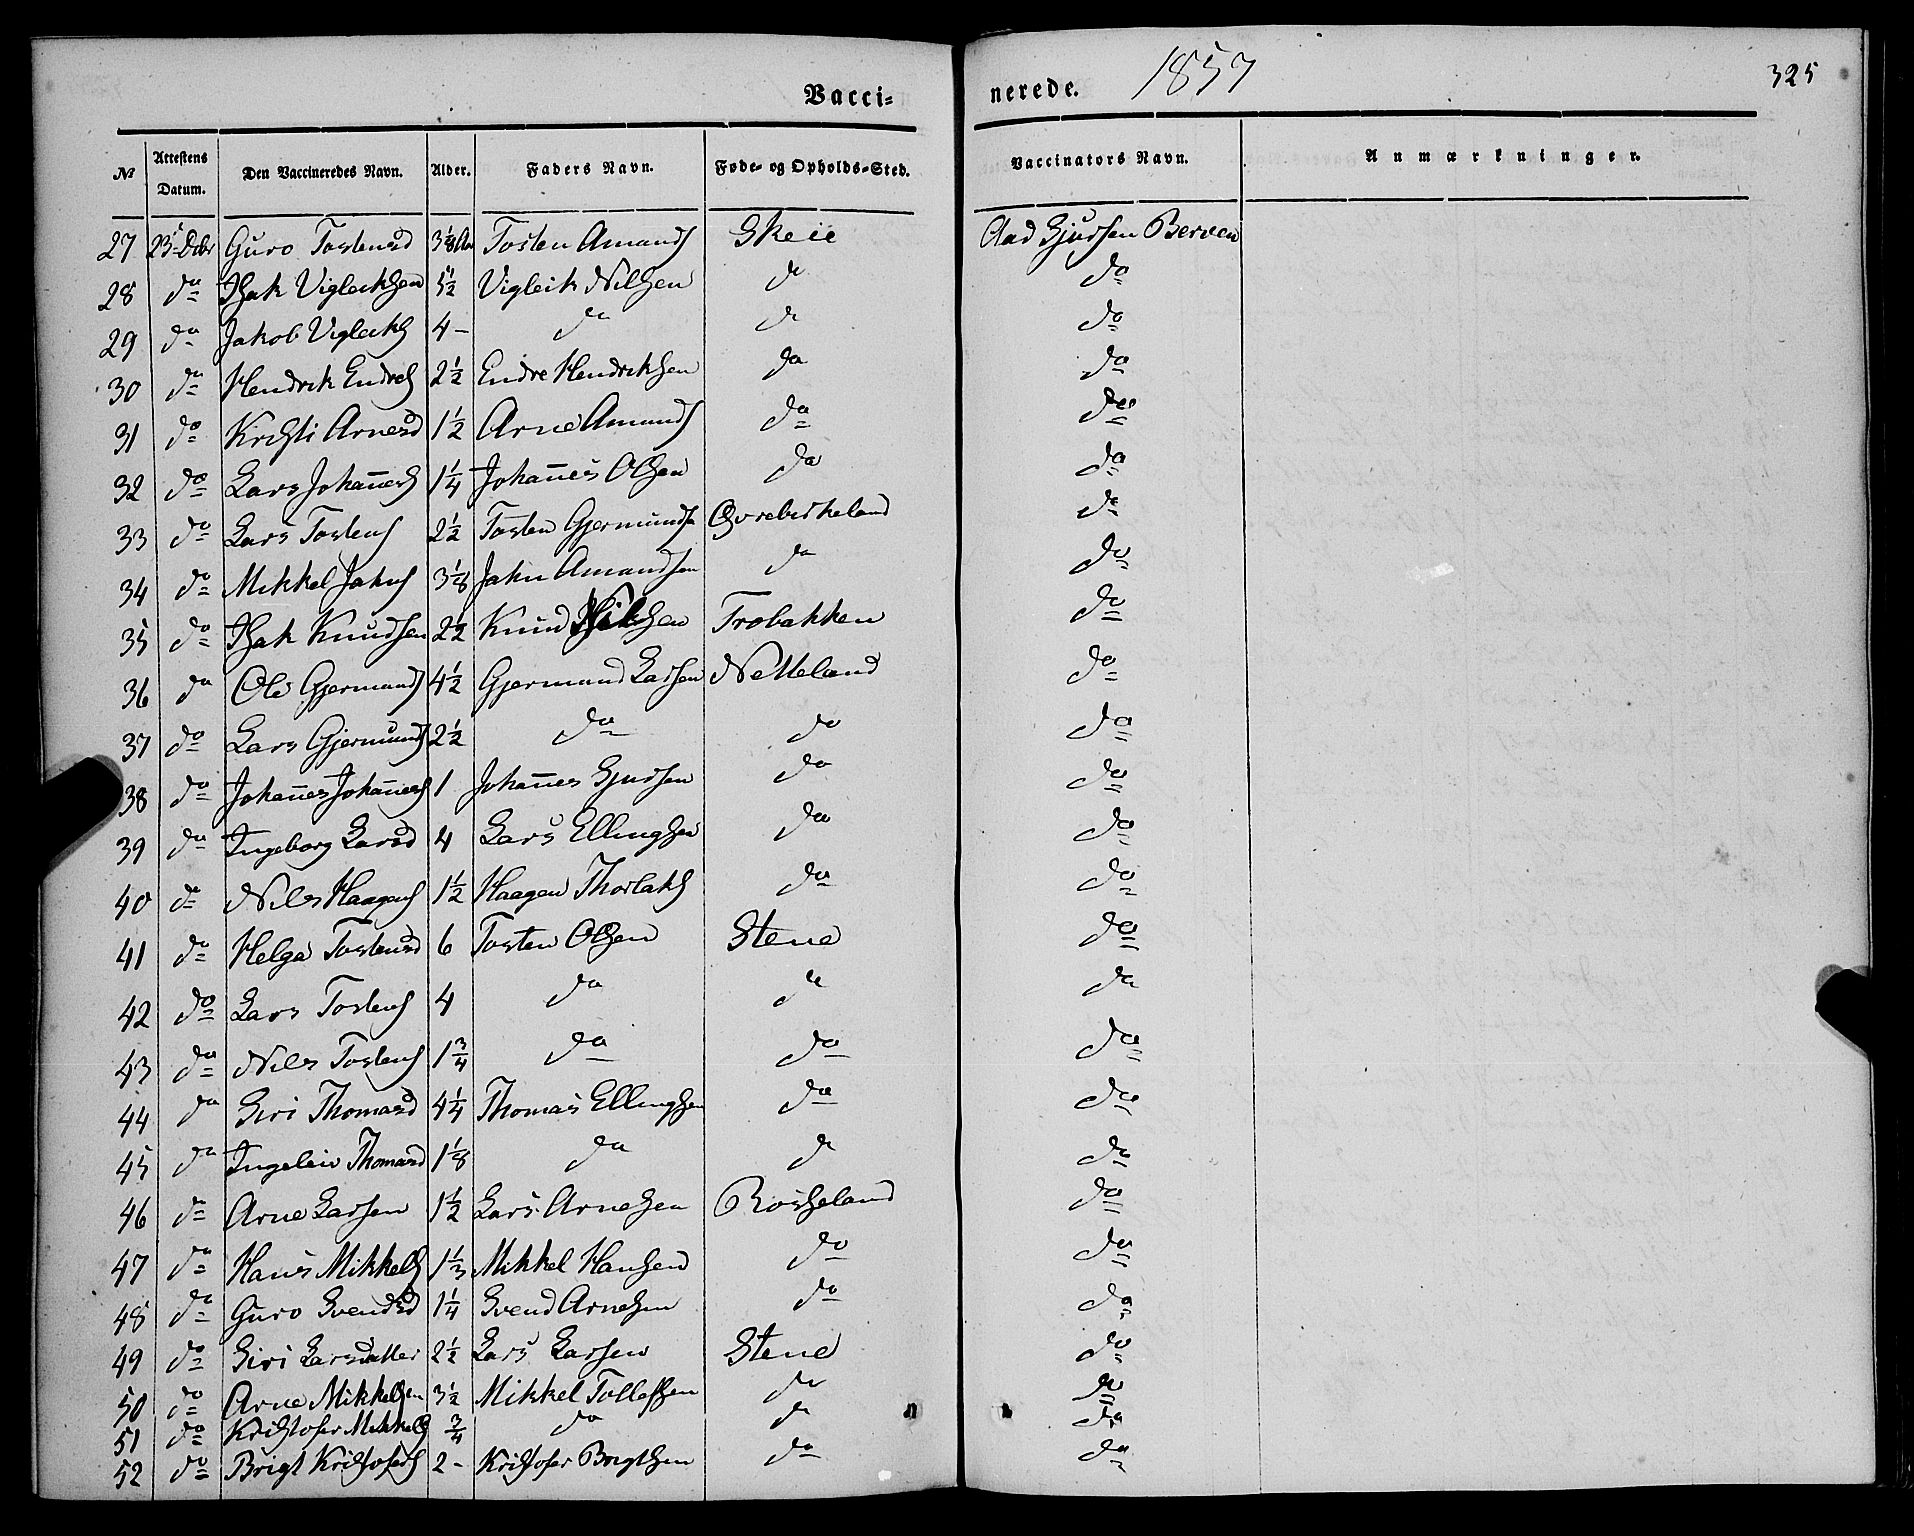 Vacci= nerede. 1857 325
№ Attestens Datum. Den Vaccineredes Navn. Alder. Faders Navn. Føde- og Opholds-Sted. Vaccinators Navn. Anmærkninger.
27 23 Debr Guro Tostensd 3 1/8 Aar Tosten Amunds Skeie Aad Sjursen Berven
28 do Isak Vigleiksen 5 1/2 Vigleik Nilsen do do
29 do Jakob Vigleiks 4 - do do do
30 do Hendrik Endres 2 1/2 Endre Hendriksen do do
31 do Kristi Arnesd 1 1/2 Arne Amunds do do
32 do Lars Johannes 1 1/4 Johannes Olsen do do
33 do Lars Tostens 2 1/2 Tosten Gjermunds Øvrebirkeland do
34 do Mikkel Jakus 3 1/8 Amundsen do do
35 do Isak Knudsen 2 1/2 Knud Trobakken do
36 do Ole Gjermunds 4 1/2 Gjermund Larsen Netteland do
37 do Lars Gjermunds 2 1/2 do do do
38 do Johannes Johannes 1 Johannes Sjursen do do
39 do Ingeborg Larsd 4 Lars Ellingsen do do
40 do Nils Haagens 1 1/2 Haagen Thorlaks do do
41 do Helga Tostensd 6 Tosten Olsen Stene do
42 do Lars Tostens 4 do do do
43 do Nils Tostens 1 3/4 do do do
44 do Siri Thomasd 4 1/4 Thomas Ellingsen do do
45 do Ingeleiv Thomasd 1 1/8 do do do
46 do Arne Larsen 1 1/2 Lars Arnesen Rosseland do
47 do Hans Mikkels 1 1/3 Mikkel Hansen do do
48 do Guro Svendsd 1 1/4 Svend Arnesen do do
49 do Siri Larsdatter 2 1/2 Lars Larsen Stene do
50 do Arne Mikkelsen 3 1/2 Mikkel Tollefsen do do
51 do Kristofer Mikkels 3/4 do do do
52 do Brigt Kristofers 2 - Kristofer Brigtsen do do